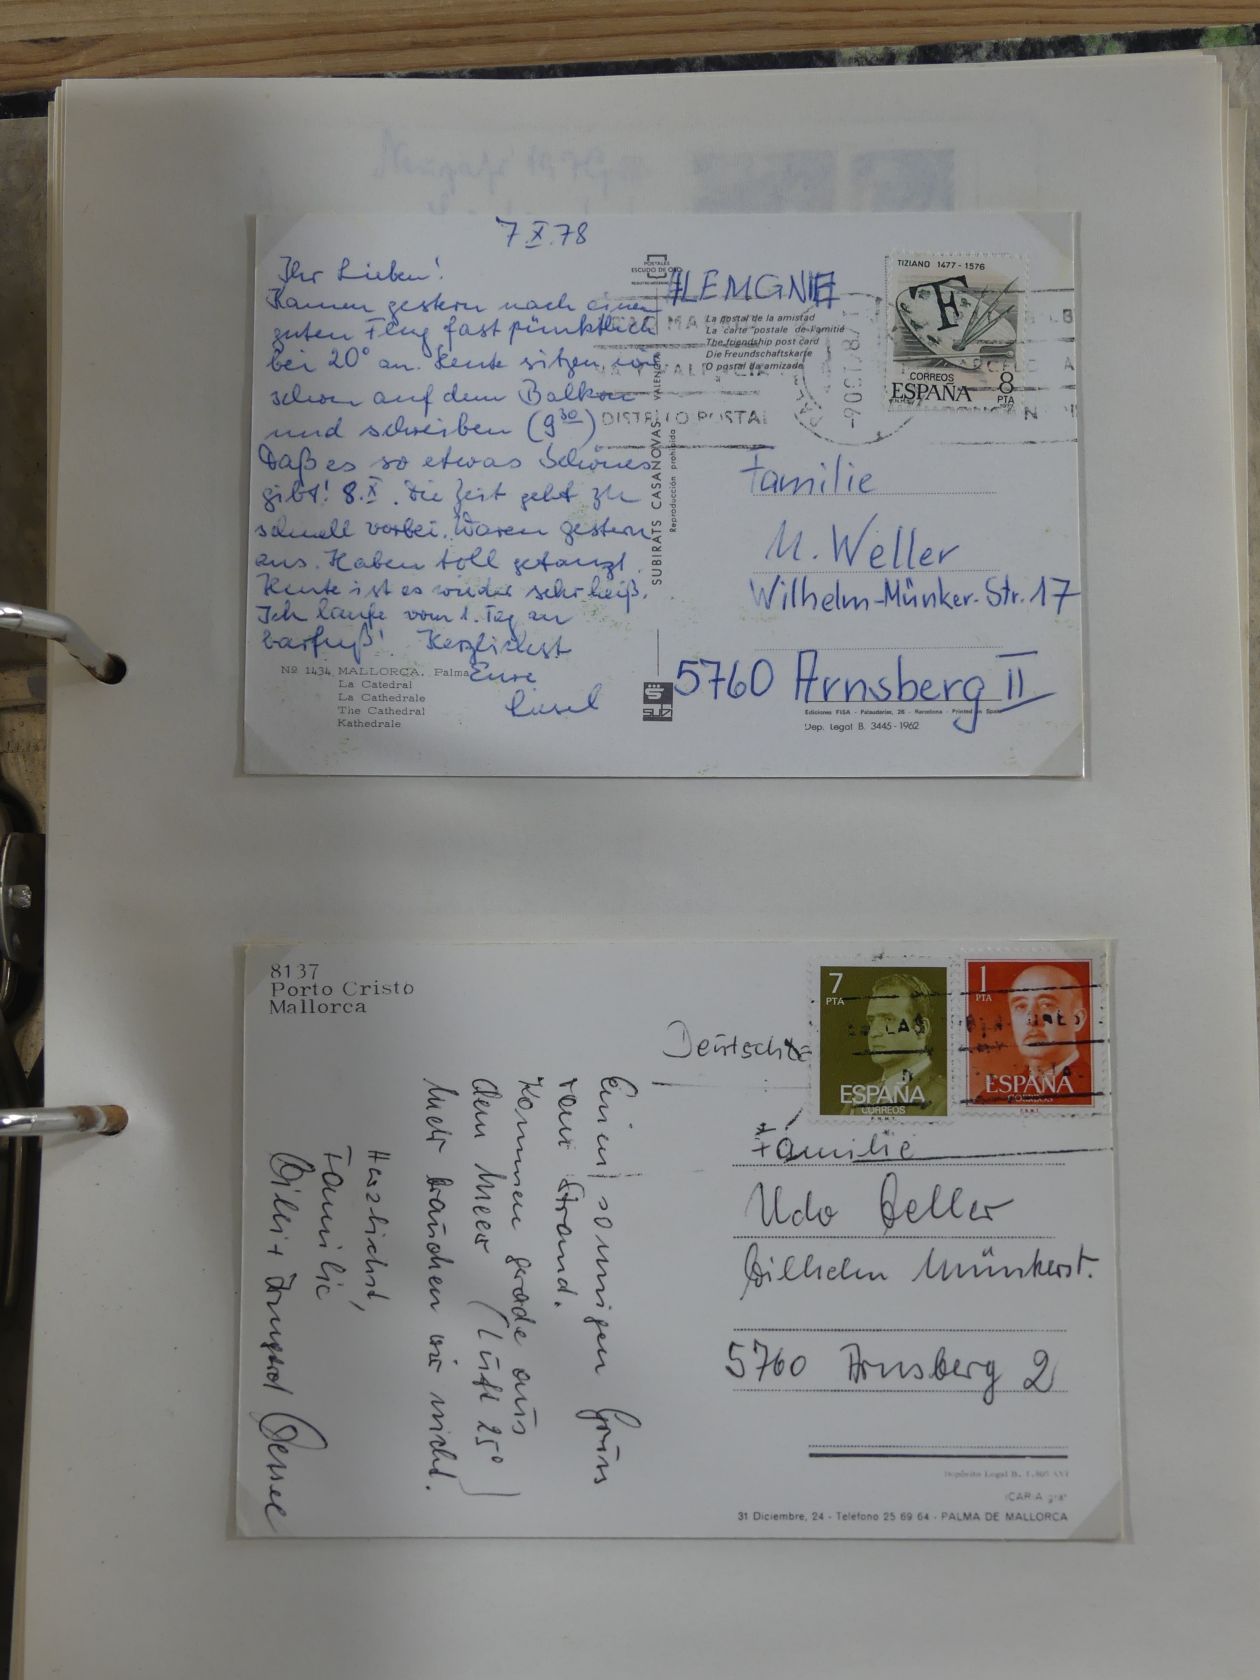 7.X.78
Ihr Lieben!
Kamen gestern nach einem
guten Flug fast pünktlich
bei 20° an. Heute sitzen wir
schon auf dem Balkon
und schreiben (9³⁰)
Daß es so etwas Schönes
gibt! 8.X. Die Zeit geht zu
schnell vorbei. Waren gestern
aus. Haben toll getanzt.
Heute ist es wieder sehr heiß.
Ich laufe vom 1. Tag an
barfuß! Herzlichst
Eure
Liesel
Nº 1434 MALLORCA. Palma
La Catedral
La Cathedrale
The Cathedral
Kathedrale
POSTALES
ESCUDO DE ORO
SUBIRATS CASANOVAS - VALENCIA
Reproducción prohibida
ALEMGNIE
La postal de la amistad
La carte postale de l'amitié
The friendship post card
Die Freundschaftskarte
O postal da amizade
DISTRITO POSTAL
PALMA
-9OCT78
TIZIANO 1477-1576
T
CORREOS
ESPAÑA
8
PTA
Familie
U. Weller
Wilhelm-Münker-Str. 17
5760 Arnsberg II
Ediciones FISA - Palaudarias, 26 - Barcelona - Printed in Spain
Dep. Legal B. 3445-1962
8137
Porto Cristo
Mallorca
Einen sonnigen Gruss
vom Strand.
Kommen gerade aus
dem Meer (Luft 25°)
Mehr brauchen wir nicht.
Herzlichst,
Familie
Willi + Irmgard
7
PTA
ESPAÑA
CORREOS
F.N.M.T.
1
PTA
ESPAÑA
CORREOS
F.N.M.T.
Familie
Udo Weller
Wilhelm Münkerst.
5760 Arnsberg 2
31 Diciembre, 24 - Teléfono 25 69 64 - PALMA DE MALLORCA